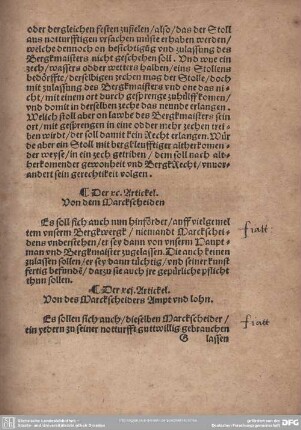 oder dergleichen festen zufielen/also/das der Stoll
aus notturfftigen vrsachen müste erhaben werden/
welche dennoch on besichtigüg vnd zulassung des
Bergkmaisters nicht geschehen soll. Vnd wue ein
zech/wassers odder wetters halden/eins Stollens
bedörffte/derselbigen zechen mag der Stolle/doch
mit zulassung des Bergkmaisters vnd one das ni-
cht/mit einem ort durch gesprenge zuhülff komen/
vnd domit in derselben zeche das neunde erlangen.
Welich stoll aber on lawbe des Bergkmaisters sein
ort/mit gesprengen in eine odder mehr zechen trei
ben wirdt/der soll damit kein Recht erlangen. Wür
de aber ein Stoll mit bergkleufftiger altherkomen-
der weyse/in ein zech getriben/dem soll nach alt-
herkomender gewonheit vnd Bergk Recht/vnuor-
andert sein gerechtikeit volgen.
¶ Der xc. Artickel.
Von dem Marckscheiden
Es soll sich auch nun hinförder/auff vielgemel
tem vnserm Bergkwergk/niemandt Marckschei-
dens vnderstehen/er sey dann von vnserm Haupt-
man vnd Bergkmaister zugelassen. Die auch keinen
zulassen sollen/er sey dann tüchtig/vnd seiner kunst
fertig befunde/darzu sie auch jre gepürliche pflicht
thun sollen.
fiatt
¶ Der xcj. Artickel.
Von des Marckscheiders Ampt vnd lohn.
Es sollen sich auch/dieselben Marckscheider/
ein yedern zu seiner notturfft guttwillig gebrauchen
fiatt
G lassen